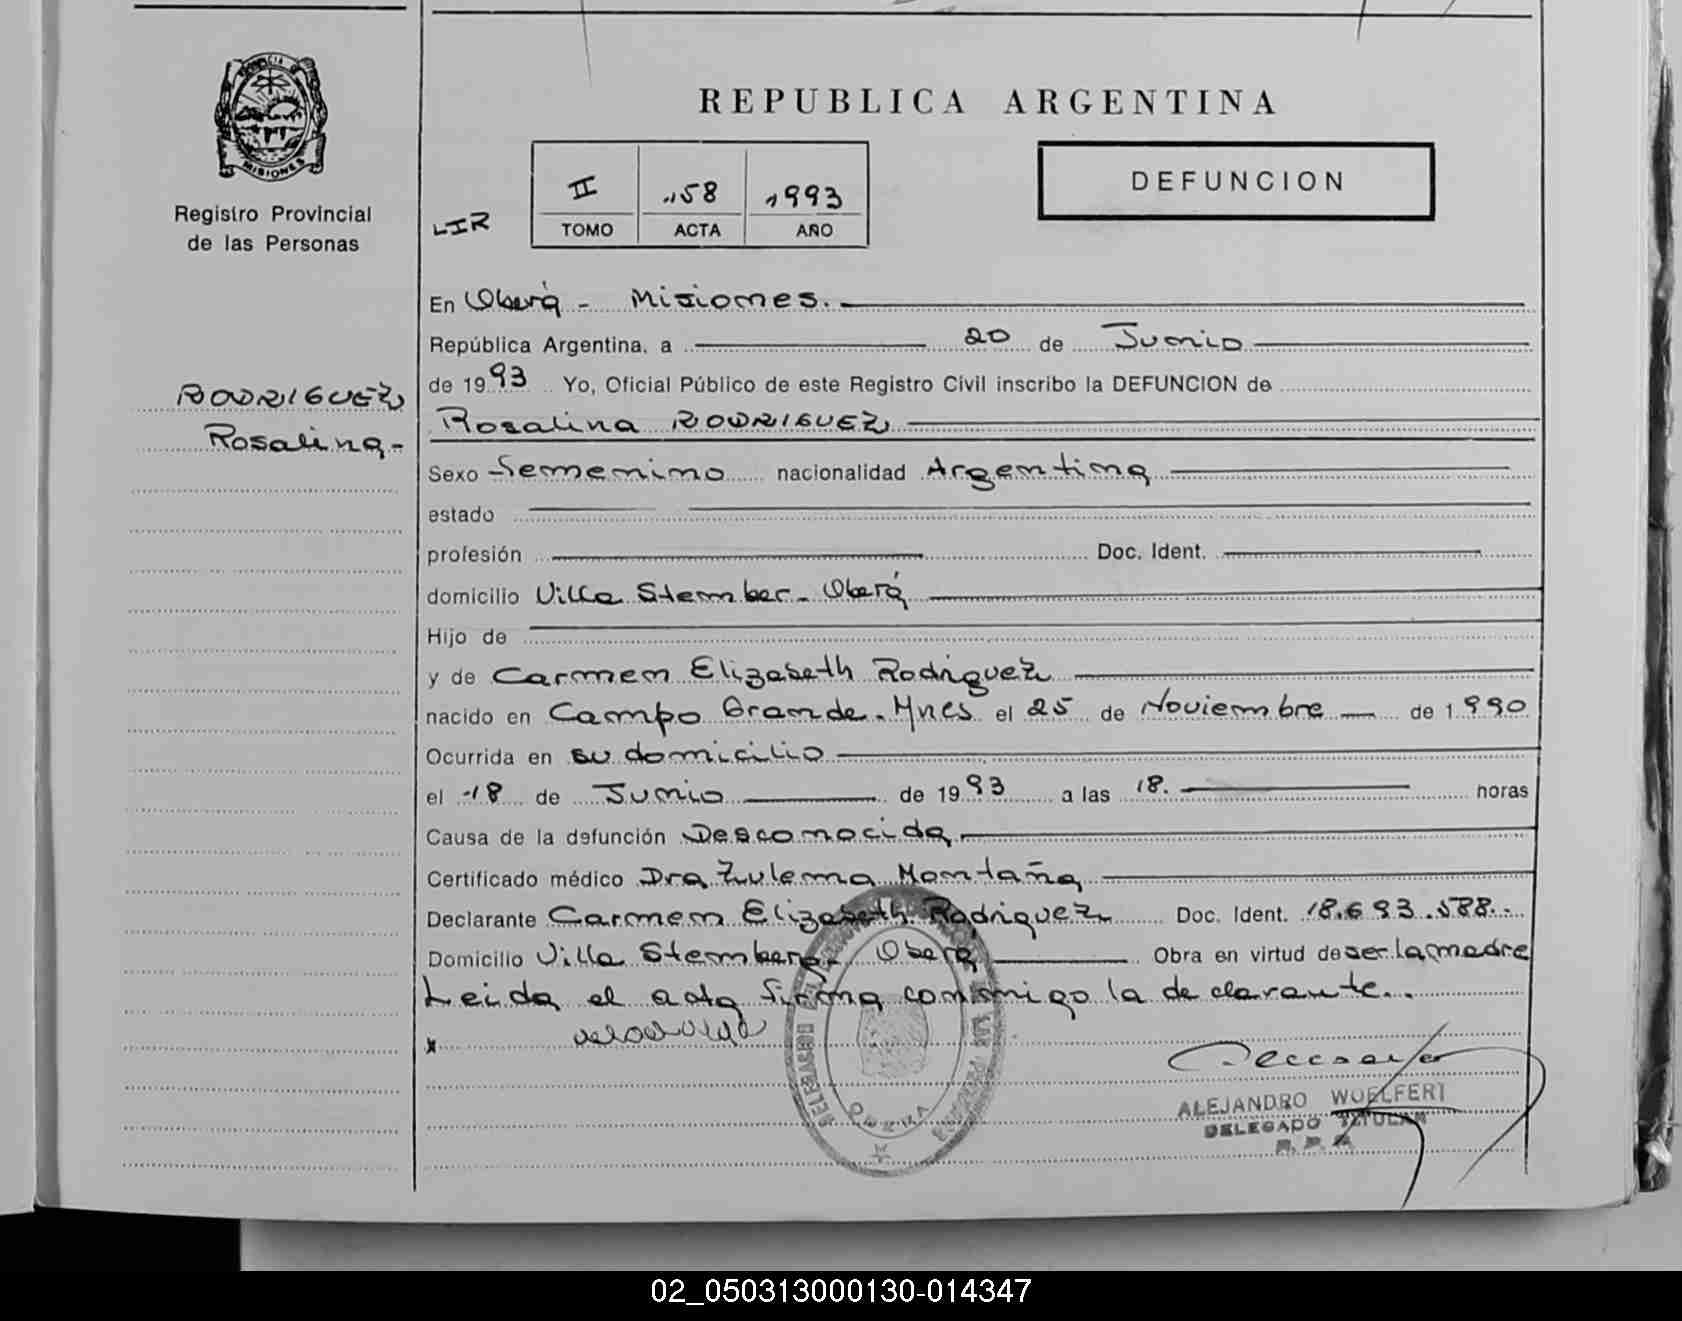 PROVINCIA DE
MISIONES
Registro Provincial
de las Personas
RODRIGUEZ
Rosalina.-
REPUBLICA ARGENTINA
LIR
II 158 1993
TOMO ACTA AÑO
DEFUNCION
En Oberá - Misiones.-
República Argentina, a 20 de Junio
de 1993 Yo, Oficial Público de este Registro Civil inscribo la DEFUNCION de
Rosalina RODRIGUEZ
Sexo femenino nacionalidad Argentina
estado
profesión Doc. Ident.
domicilio Villa Stember - Oberá
Hijo de
y de Carmen Elizabeth Rodriguez
nacido en Campo Grande - Mnes el 25 de Noviembre de 1990
Ocurrida en su domicilio
el 18 de Junio de 1993 a las 18. horas
Causa de la defunción Desconocida
Certificado médico Dra Zulema Montaña
Declarante Carmen Elizabeth Rodriguez Doc. Ident. 18.693.588.-
Domicilio Villa Stemberg - Oberá Obra en virtud de ser la madre
Leida el acta firma conmigo la declarante..
x
ALEJANDRO WOELFERT
DELEGADO TITULAR
R. P. P.
OBERA
02_050313000130-014347